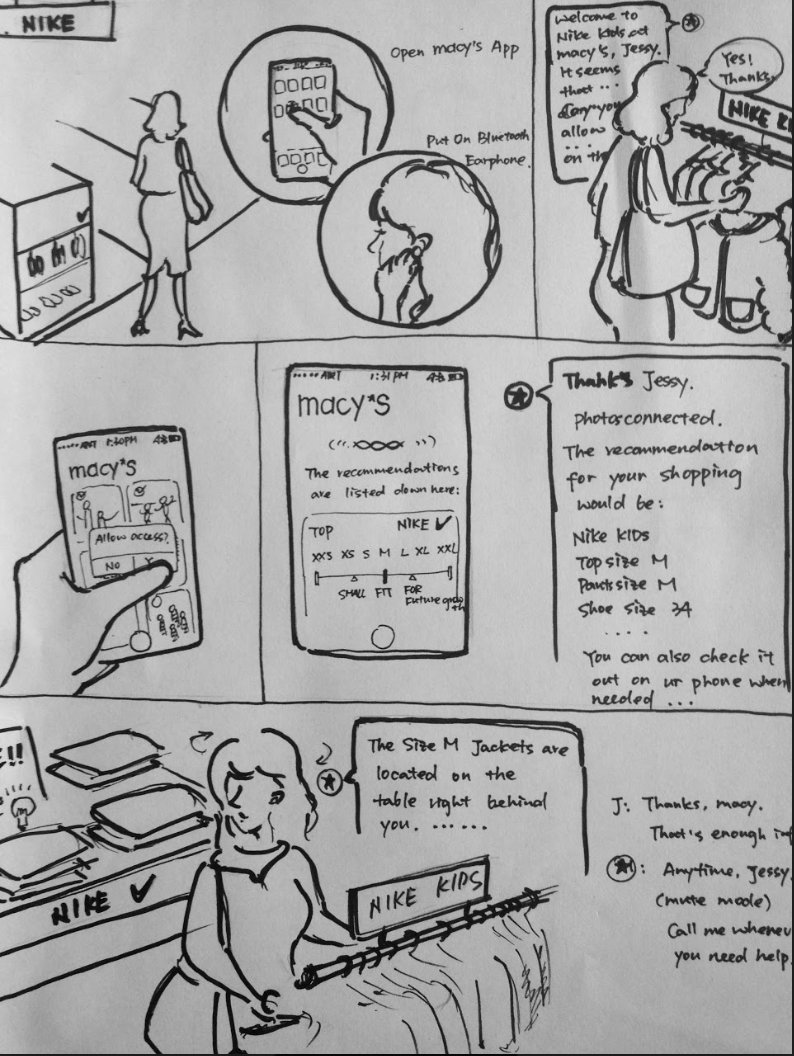 NIKE
Open macy's App
Put On Bluetooth
Earphone.
Welcome to
Nike Kids at
macy's, Jessy.
It seems
that ...
you
allow
...
on the
Yes!
Thanks
NIKE KI
AT&T 1:30PM
macy*s
Allow access?
NO Y
AT&T 1:31 PM
macy*s
The recommendations
are listed down here:
TOP NIKE
XXS XS S M L XL XXL
SMALL FIT FOR
Future
Thanks Jessy.
Photos connected.
The recommendation
for your shopping
would be:
Nike KIDS
Top size M
Pants size M
Shoe Size 34
....
You can also check it
out on ur phone when
needed ...
!!
NIKE
The Size M Jackets are
located on the
table right behind
you. ......
NIKE KIDS
J: Thanks, macy.
That's enough in
: Anytime, Jessy.
(mute mode)
Call me whenev
you need help.